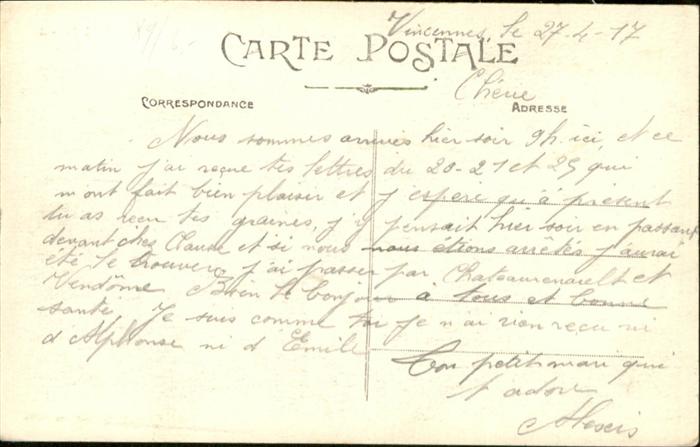 Vincennes, le 27-4-17
CARTE POSTALE
Chérie
CORRESPONDANCE
ADRESSE
Nous sommes arrivés hier soir 9h. ici, et ce
matin j'ai reçue tes lettres du 20-21 et 25 qui
m'ont fait bien plaisir et j'espere qu'à présent
tu as reçu tes graines, j'y pensait hier soir en passant
devant chez Claude et si nous nous étions arrêtés j'aurai
été le trouver, j'ai passer par Chateaurenault et
Vendôme Bien le bonjour à tous et bonne
santé. Je suis comme toi je n'ai rien reçu ni
d'Alphonse ni d'Emile
Ton petit mari qui
t'adore
Alexis